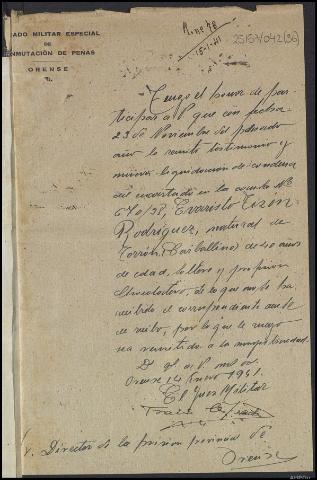 ADO MILITAR ESPECIAL
DE
NMUTACIÓN DE PENAS
ORENSE
251504/042(36)
15-1-41
Tengo el honor de par-
ticipar a V que con fecha
23 de Noviembre del pasado
año le remito testimonio y
nueva liquidación de condena
del encartado en la causa Nº
670/38, Evaristo Tizón
Rodríguez, natural de
(Carballino) de 40 años
de edad, soltero y profesión
de lo que no se ha
recibido el correspondiente acuse
de recibo, por lo que le ruego
sea remitido a la mayor brevedad.
D. g. a V. m. a.
Orense 14 Enero 1941.
El Juez Militar
Sr. Director de la prisión provincial de
Orense